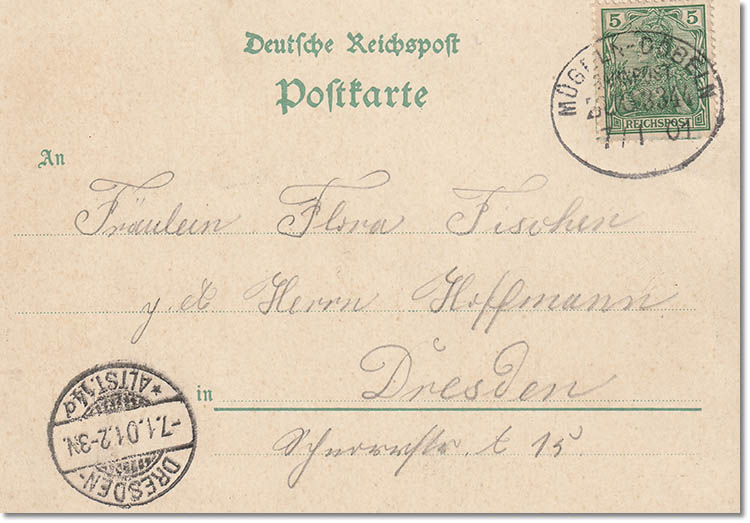 Deutsche Reichspost
Postkarte
5 5
REICHSPOST
MÜGELN-DÖBELN
7/1 01
An
Fräulein Flora Fischer
Herrn Hoffmann
in Dresden
Schnorrstr. 15
DRESDEN-
* ALTST. 14
-7.1.01.2-3N.